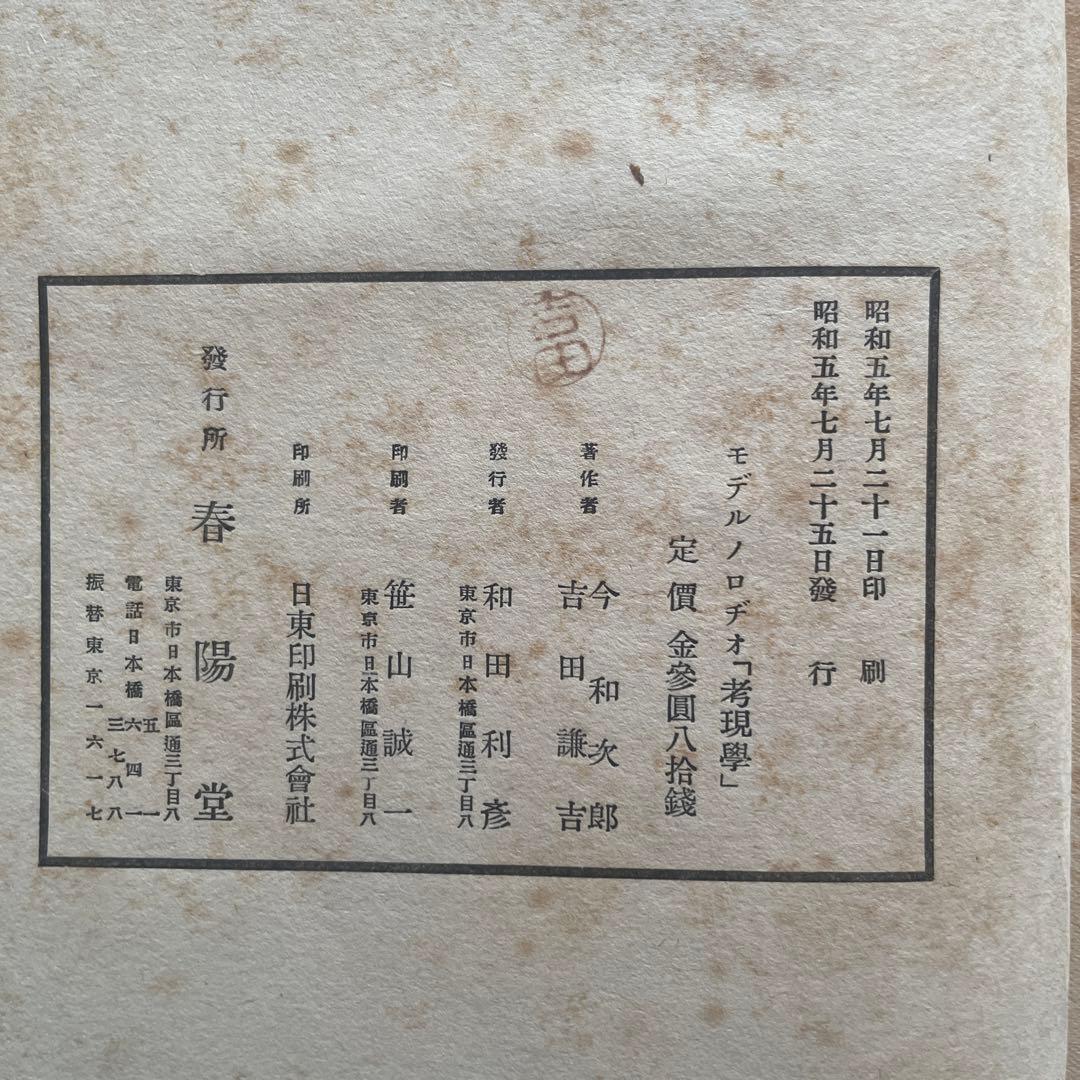 昭和五年七月二十一日印刷
昭和五年七月二十五日發行
モデルノロヂオ「考現學」
定價金參圓八拾錢
著作者
今和次郎
吉田謙吉
吉田
發行者
和田利彥
東京市日本橋區通三丁目八
印刷者
笹山誠一
東京市日本橋區通三丁目八
印刷所
日東印刷株式會社
發行所
春陽堂
東京市日本橋區通三丁目八
電話日本橋
五一
六四一
三七八八
振替東京一六一七